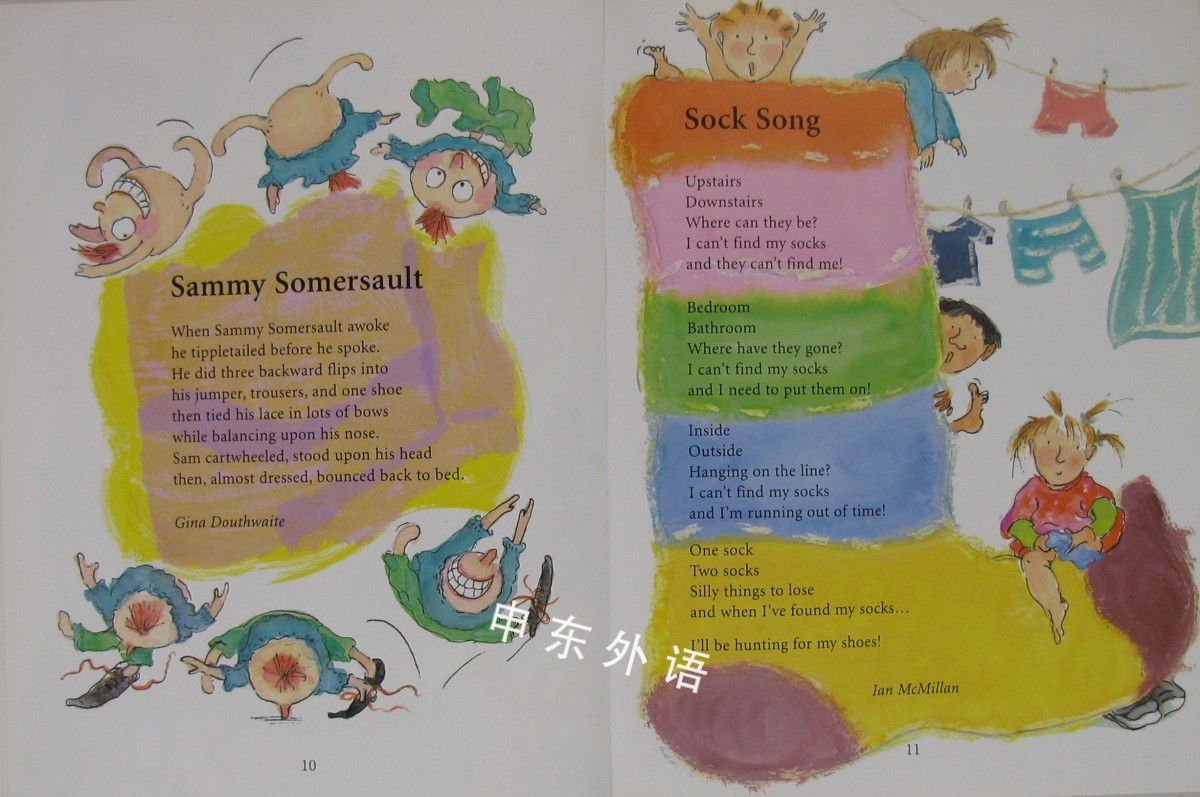 Sammy Somersault
When Sammy Somersault awoke
he tippletailed before he spoke.
He did three backward flips into
his jumper, trousers, and one shoe
then tied his lace in lots of bows
while balancing upon his nose.
Sam cartwheeled, stood upon his head
then, almost dressed, bounced back to bed.
Gina Douthwaite
10
Sock Song
Upstairs
Downstairs
Where can they be?
I can't find my socks
and they can't find me!
Bedroom
Bathroom
Where have they gone?
I can't find my socks
and I need to put them on!
Inside
Outside
Hanging on the line?
I can't find my socks
and I'm running out of time!
One sock
Two socks
Silly things to lose
and when I've found my socks…
I'll be hunting for my shoes!
Ian McMillan
11
申东外语